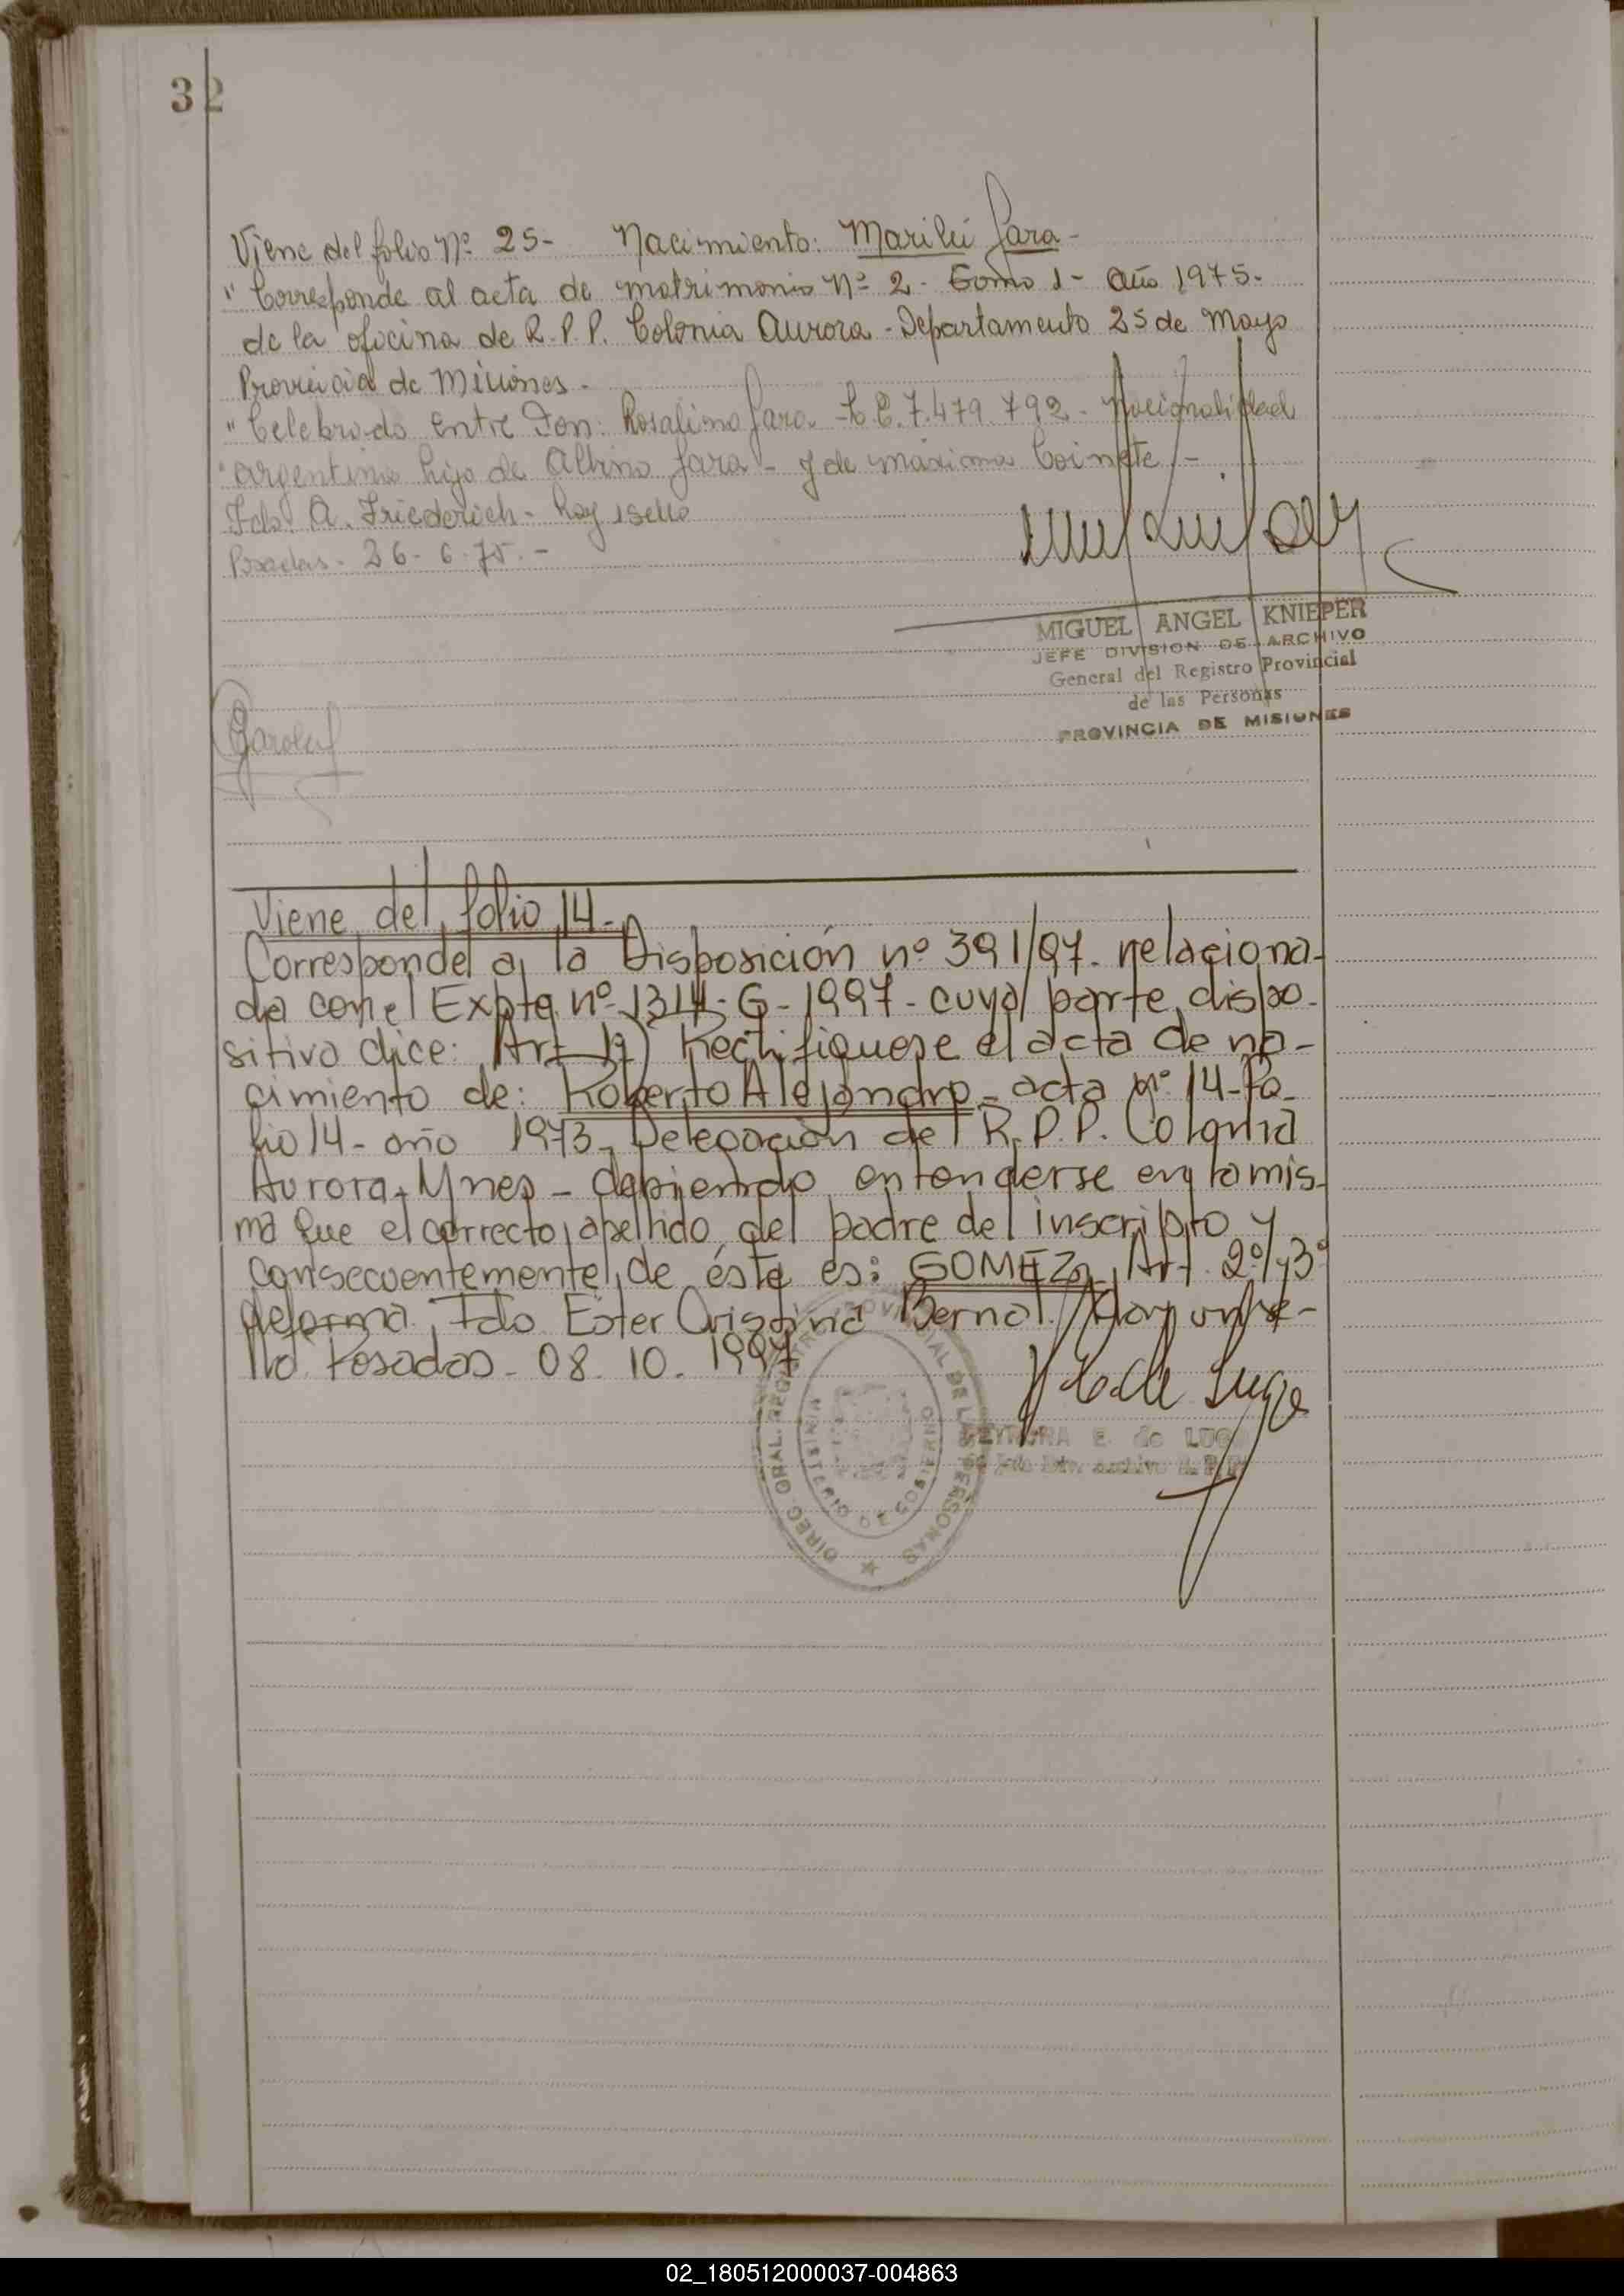 32
Viene del folio Nº 25- Nacimiento: Marilú Jara-
" Corresponde al acta de matrimonio Nº 2- Tomo 1- Año 1975-
de la oficina de R.P.P. Colonia Aurora - Departamento 25 de Mayo
Provincia de Misiones -
" Celebrado entre Don: Rosalino Jara - L.E. 7.479.792 - Nacionalidad
argentino hijo de Albino Jara - y de máxima
Fdo. A. Friederich - Hay 1 sello
Posadas - 26-6-75.-
MIGUEL ANGEL KNIEPER
JEFE DIVISION DE ARCHIVO
General del Registro Provincial
de las Personas
PROVINCIA DE MISIONES
Viene del folio 14-
Corresponde a la Disposición nº 391/97- relaciona-
da con el Expte nº 1314-G-1997- cuya parte dispo-
sitiva dice: Art 1º) Rectifiquese el acta de na-
cimiento de: Roberto Alejandro - acta nº 14- Fo-
lio 14- año 1973- Delegación del R.P.P. Colonia
Aurora - Mnes - debiendo entenderse en la mis-
ma que el correcto apellido del padre del inscripto y
consecuentemente de éste es: GOMEZ- Art. 2º y 3º
de forma. Fdo Ester Cristina Bernal. Hay un se-
llo. Posadas - 08. 10. 1997
DIREC. GRAL. REGISTRO PROVINCIAL DE LAS PERSONAS
MINISTERIO DE GOBIERNO
E. de LUGO
02_180512000037-004863